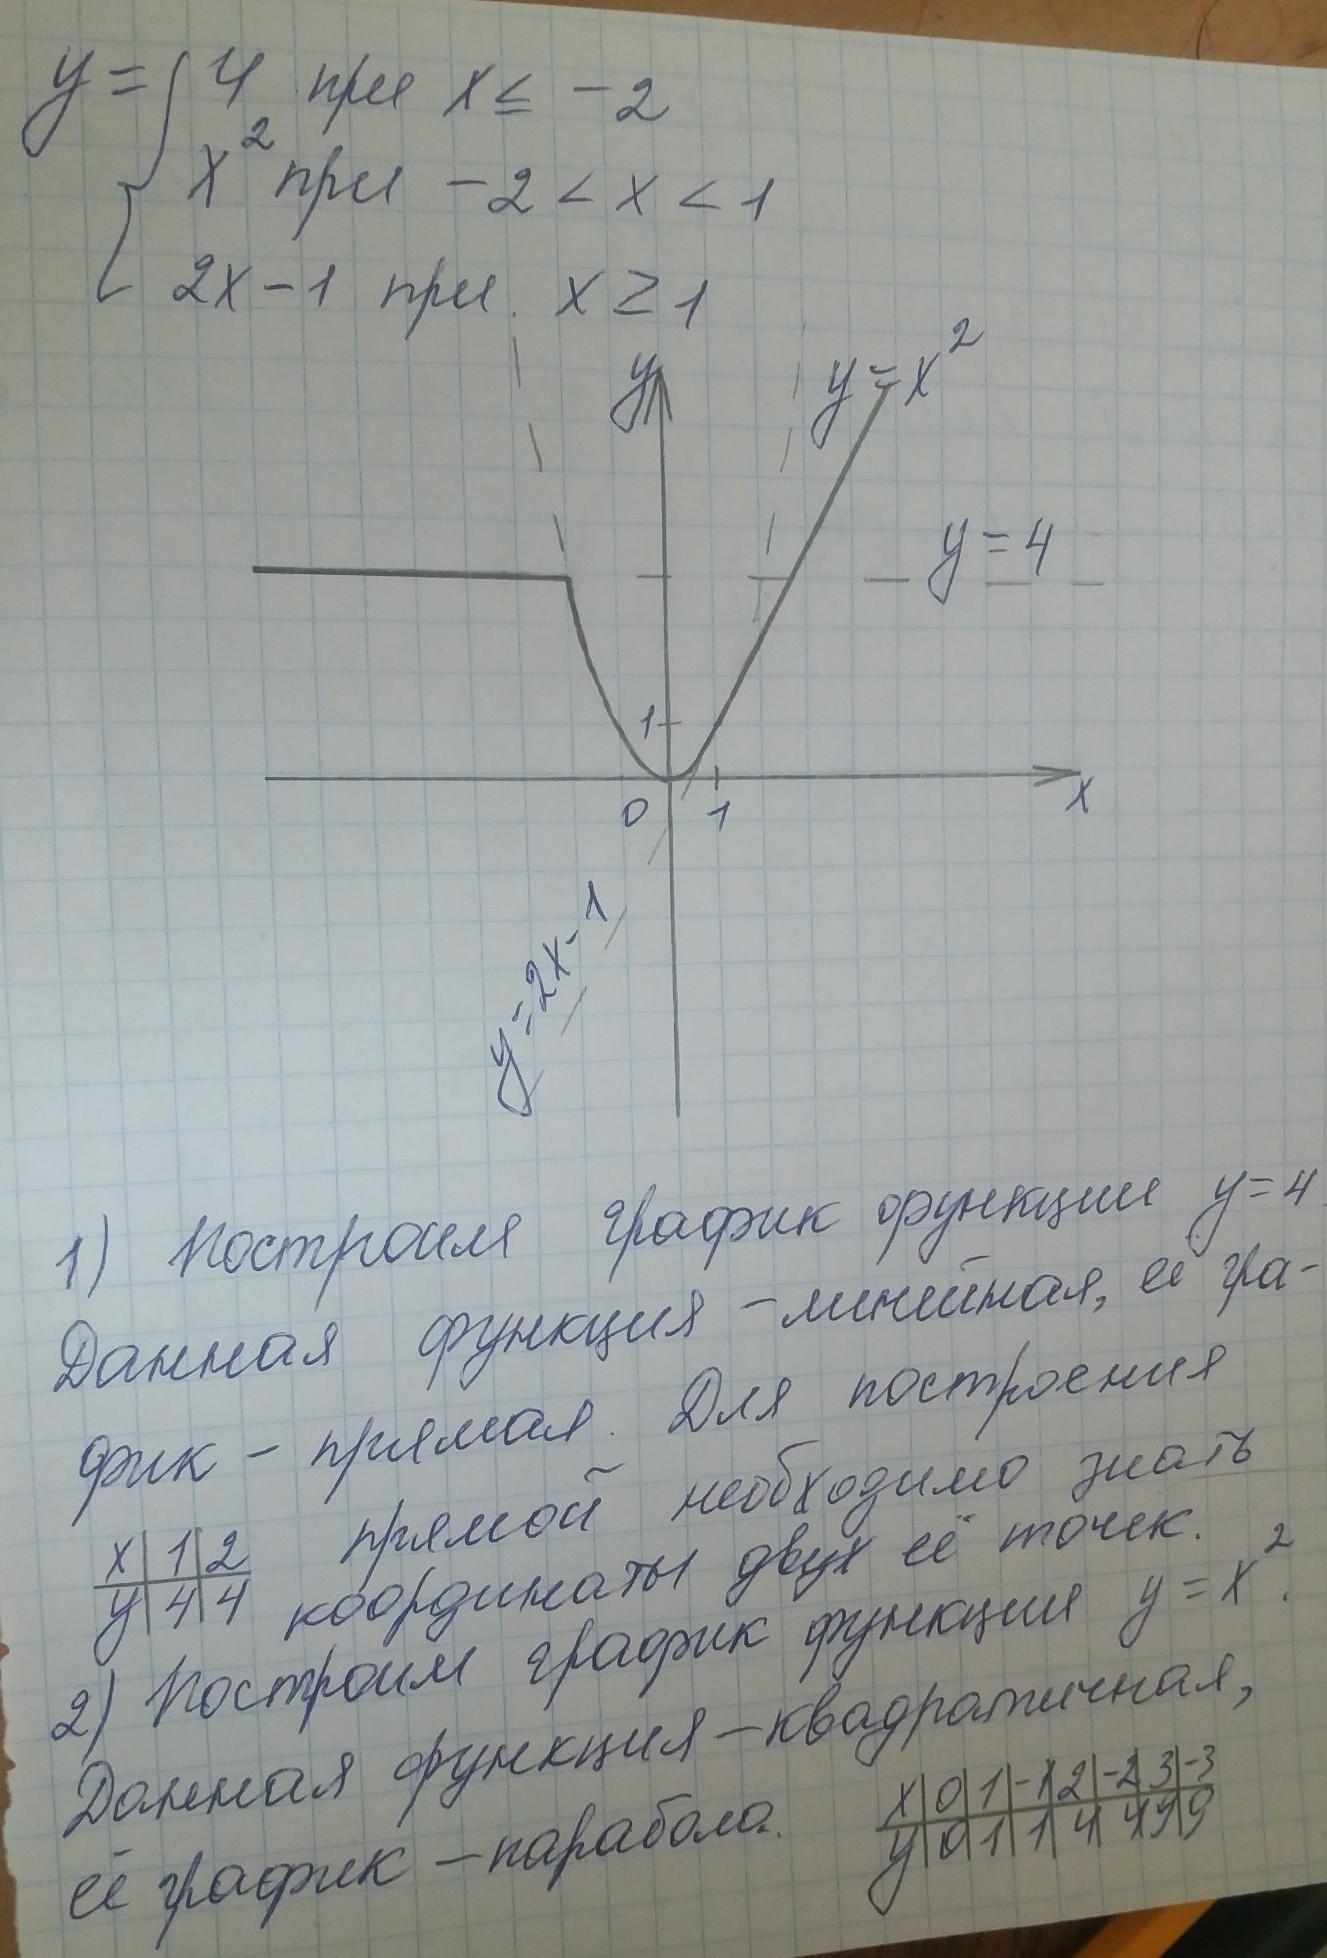 y = { 4 при x ≤ -2
x² при -2 < x < 1
2x - 1 при x ≥ 1
y
y = x²
y = 4
1
0
1
x
y = 2x - 1
1) Построим график функции y = 4
Данная функция - линейная, её гра-
фик - прямая. Для построения
прямой необходимо знать
x | 1 | 2
y | 4 | 4
координаты двух её точек.
2) Построим график функции y = x².
Данная функция - квадратичная,
её график - парабола.
x | 0 | 1 | -1 | 2 | -2 | 3 | -3
y | 0 | 1 | 1 | 4 | 4 | 9 | 9